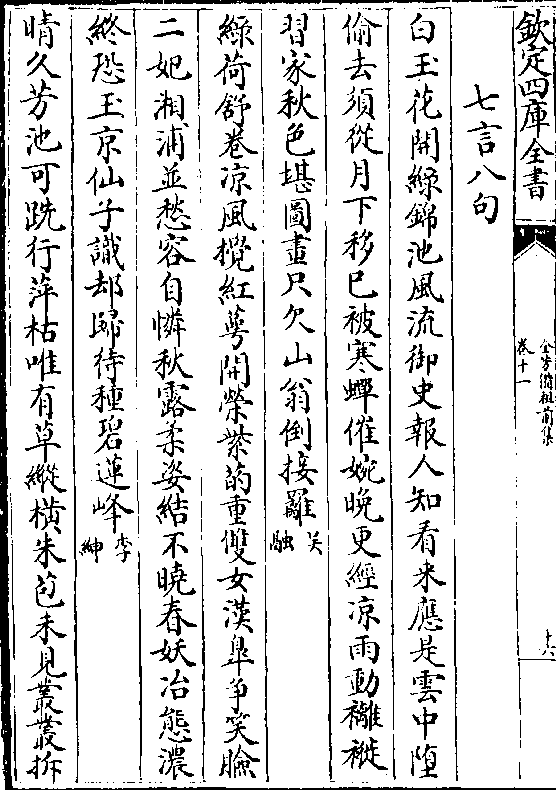 欽定四庫全書
全芳備祖前集
卷十一
十六
七言八句
白玉花開綠錦池風流御史報人知看來應是雲中墮
偷去須從月下移已被寒蟬催婉晚更經凉雨動褵褷
習家秋色堪圖畫只欠山翁倒接䍦吴融
綠荷舒卷凉風攪紅萼開縈紫菂重雙女漢臯爭笑臉
二妃湘浦並愁容自憐秋露柔姿結不曉春妖冶態濃
終恐玉京仙子識却歸待種碧蓮峰李紳
晴久芳池可跣行萍枯唯有草縱橫朱苞未見叢叢拆